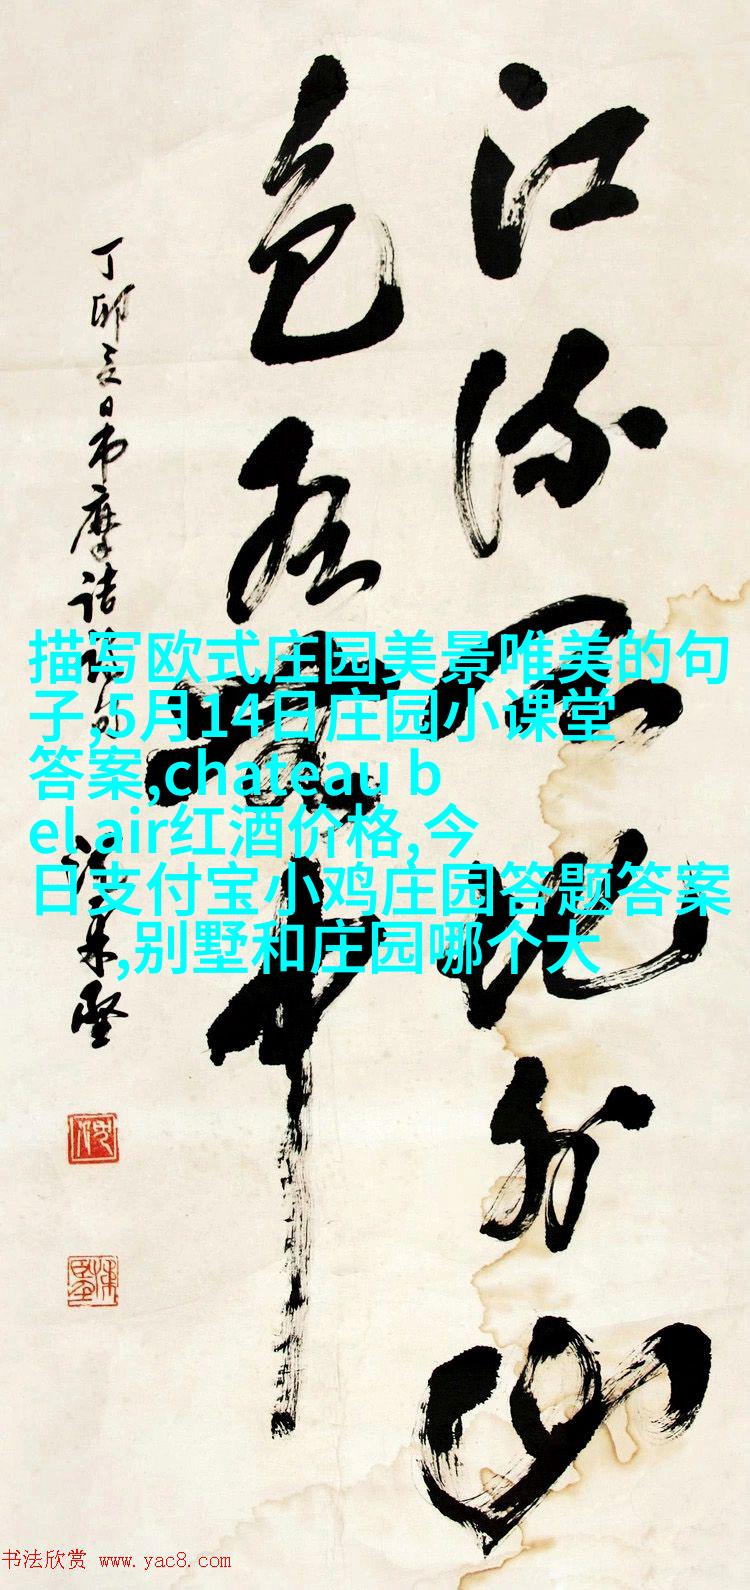 江流天地外山
色有無中
丁卯夏日书摩诘诗句
沈東堅
描写欧式庄园美景唯美的句
子,5月14日庄园小课堂
答案,chateau b
el air红酒价格,今
日支付宝小鸡庄园答题答案
,别墅和庄园哪个大
书法欣赏 www.yac8.com